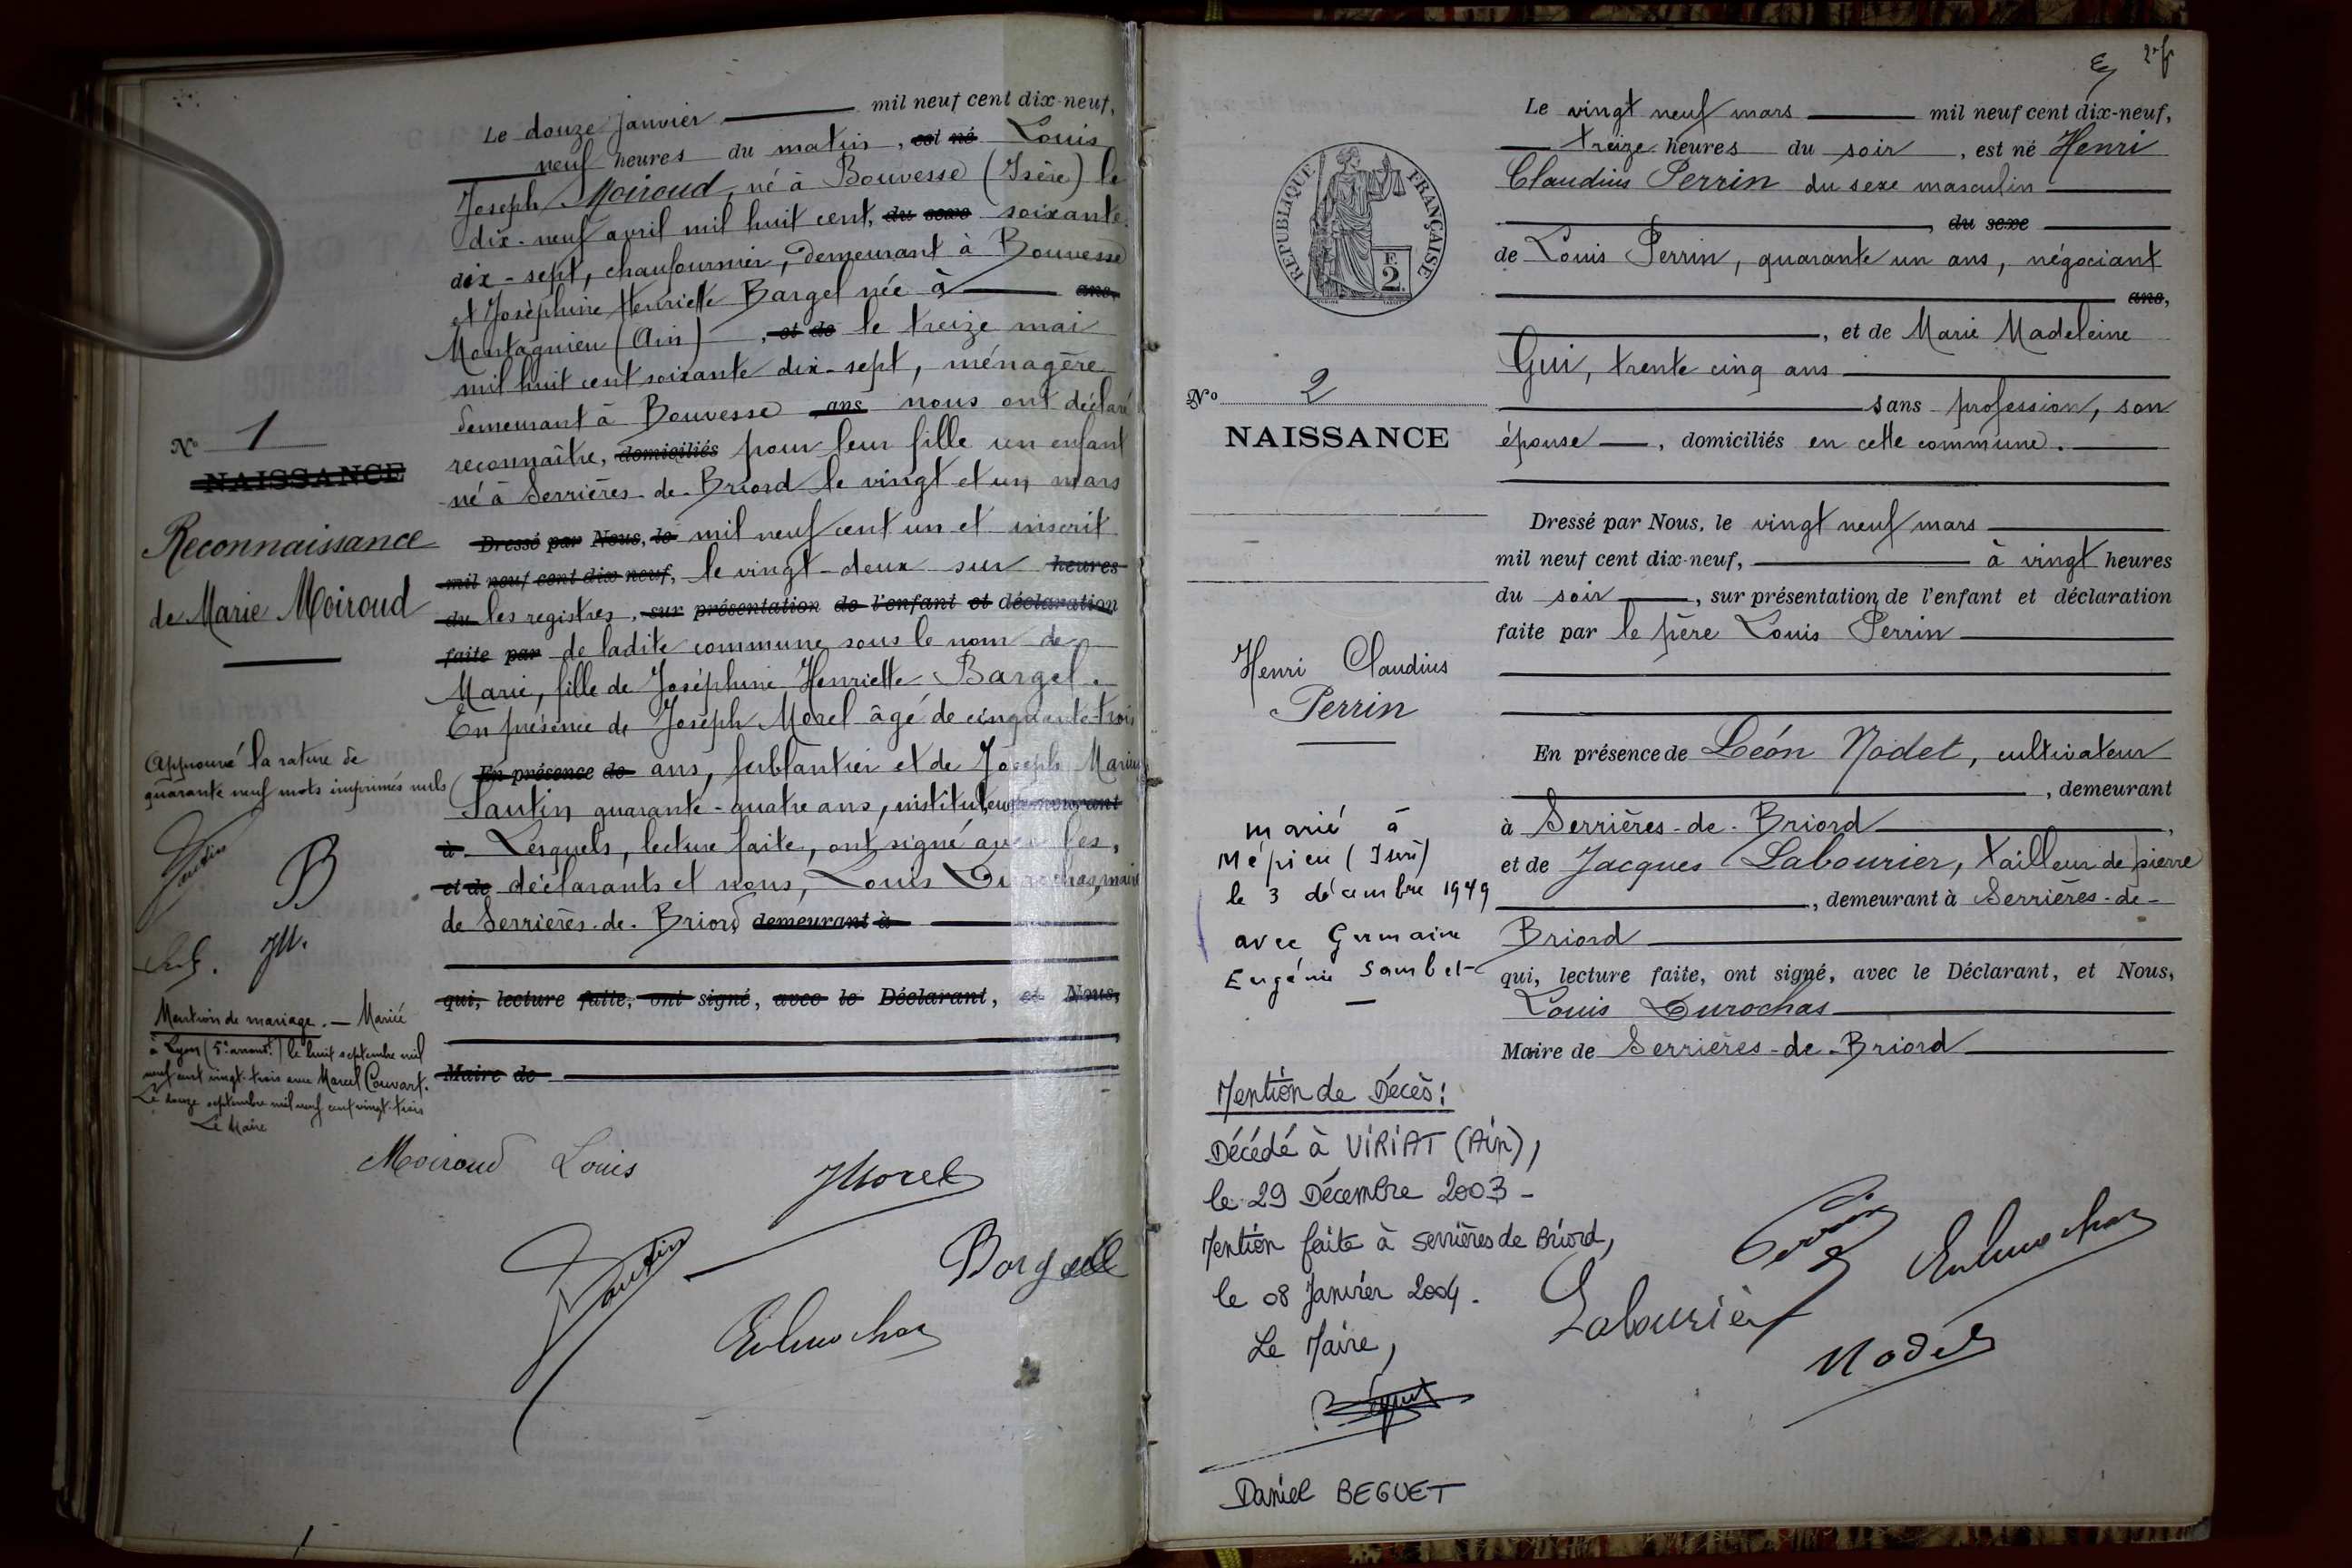 Le douze janvier mil neuf cent dix-neuf,
neuf heures du matin, est né Louis
Joseph Moiroud, né à Bouvesse (Isère) le
dix-neuf avril mil huit cent, du sexe soixante
dix-sept, chaufournier, demeurant à Bouvesse
et Joséphine Henriette Bargel née à ans,
Montagnieu (Ain), et de le treize mai
mil huit cent soixante dix-sept, ménagère
demeurant à Bouvesse ans nous ont déclaré
reconnaître, domiciliés pour leur fille un enfant
né à Serrières-de-Briord le vingt et un mars
Dressé par Nous, le mil neuf cent un et inscrit
mil neuf cent dix-neuf, le vingt-deux sur heures
du les registres, sur présentation de l'enfant et déclaration
faite par de ladite commune sous le nom de
Marie, fille de Joséphine Henriette Bargel.
En présence de Joseph Morel âgé de cinquante-trois
En présence de ans, ferblantier et de Joseph Marius
Pautin quarante-quatre ans, instituteur demeurant
à Lesquels, lecture faite, ont signé avec les,
et de déclarants et nous, Louis Durochas, maire
de Serrières-de-Briord demeurant à
qui, lecture faite, ont signé, avec le Déclarant, et Nous,
Maire de
No 1
NAISSANCE
Reconnaissance
de Marie Moiroud
Approuvé la rature de
quarante neuf mots imprimés nuls
Pautin
B
JM.
Mention de mariage. — Mariée
à Lyon (5e arrondt) le huit septembre mil
neuf cent vingt-trois avec Marcel Couvart.
Le douze septembre mil neuf cent vingt-trois
Le Maire
Moiroud Louis
JMorel
Pautin
Bargel
Durochas
2e f
RÉPUBLIQUE FRANÇAISE
F.
2.
No 2
NAISSANCE
Henri Claudius
Perrin
marié à
Mépieu (Isère)
le 3 décembre 1949
avec Germaine
Eugénie Sambet
Mention de Décès:
Décédé à VIRIAT (Ain),
le 29 Décembre 2003 -
Mention faite à Serrières de Briord,
le 08 Janvier 2004.
Le Maire,
Béguet
Daniel BEGUET
Le vingt neuf mars mil neuf cent dix-neuf,
treize heures du soir, est né Henri
Claudius Perrin du sexe masculin
du sexe
de Louis Perrin, quarante un ans, négociant
ans,
, et de Marie Madeleine
Gui, trente cinq ans
sans profession, son
épouse, domiciliés en cette commune.
Dressé par Nous, le vingt neuf mars
mil neuf cent dix-neuf, à vingt heures
du soir, sur présentation de l'enfant et déclaration
faite par le père Louis Perrin
En présence de Léon Nodet, cultivateur
, demeurant
à Serrières-de-Briord,
et de Jacques Labourier, tailleur de pierre
, demeurant à Serrières-de-
Briord
qui, lecture faite, ont signé, avec le Déclarant, et Nous,
Louis Durochas
Maire de Serrières-de-Briord
Perrin
Durochas
Labourier
Nodet